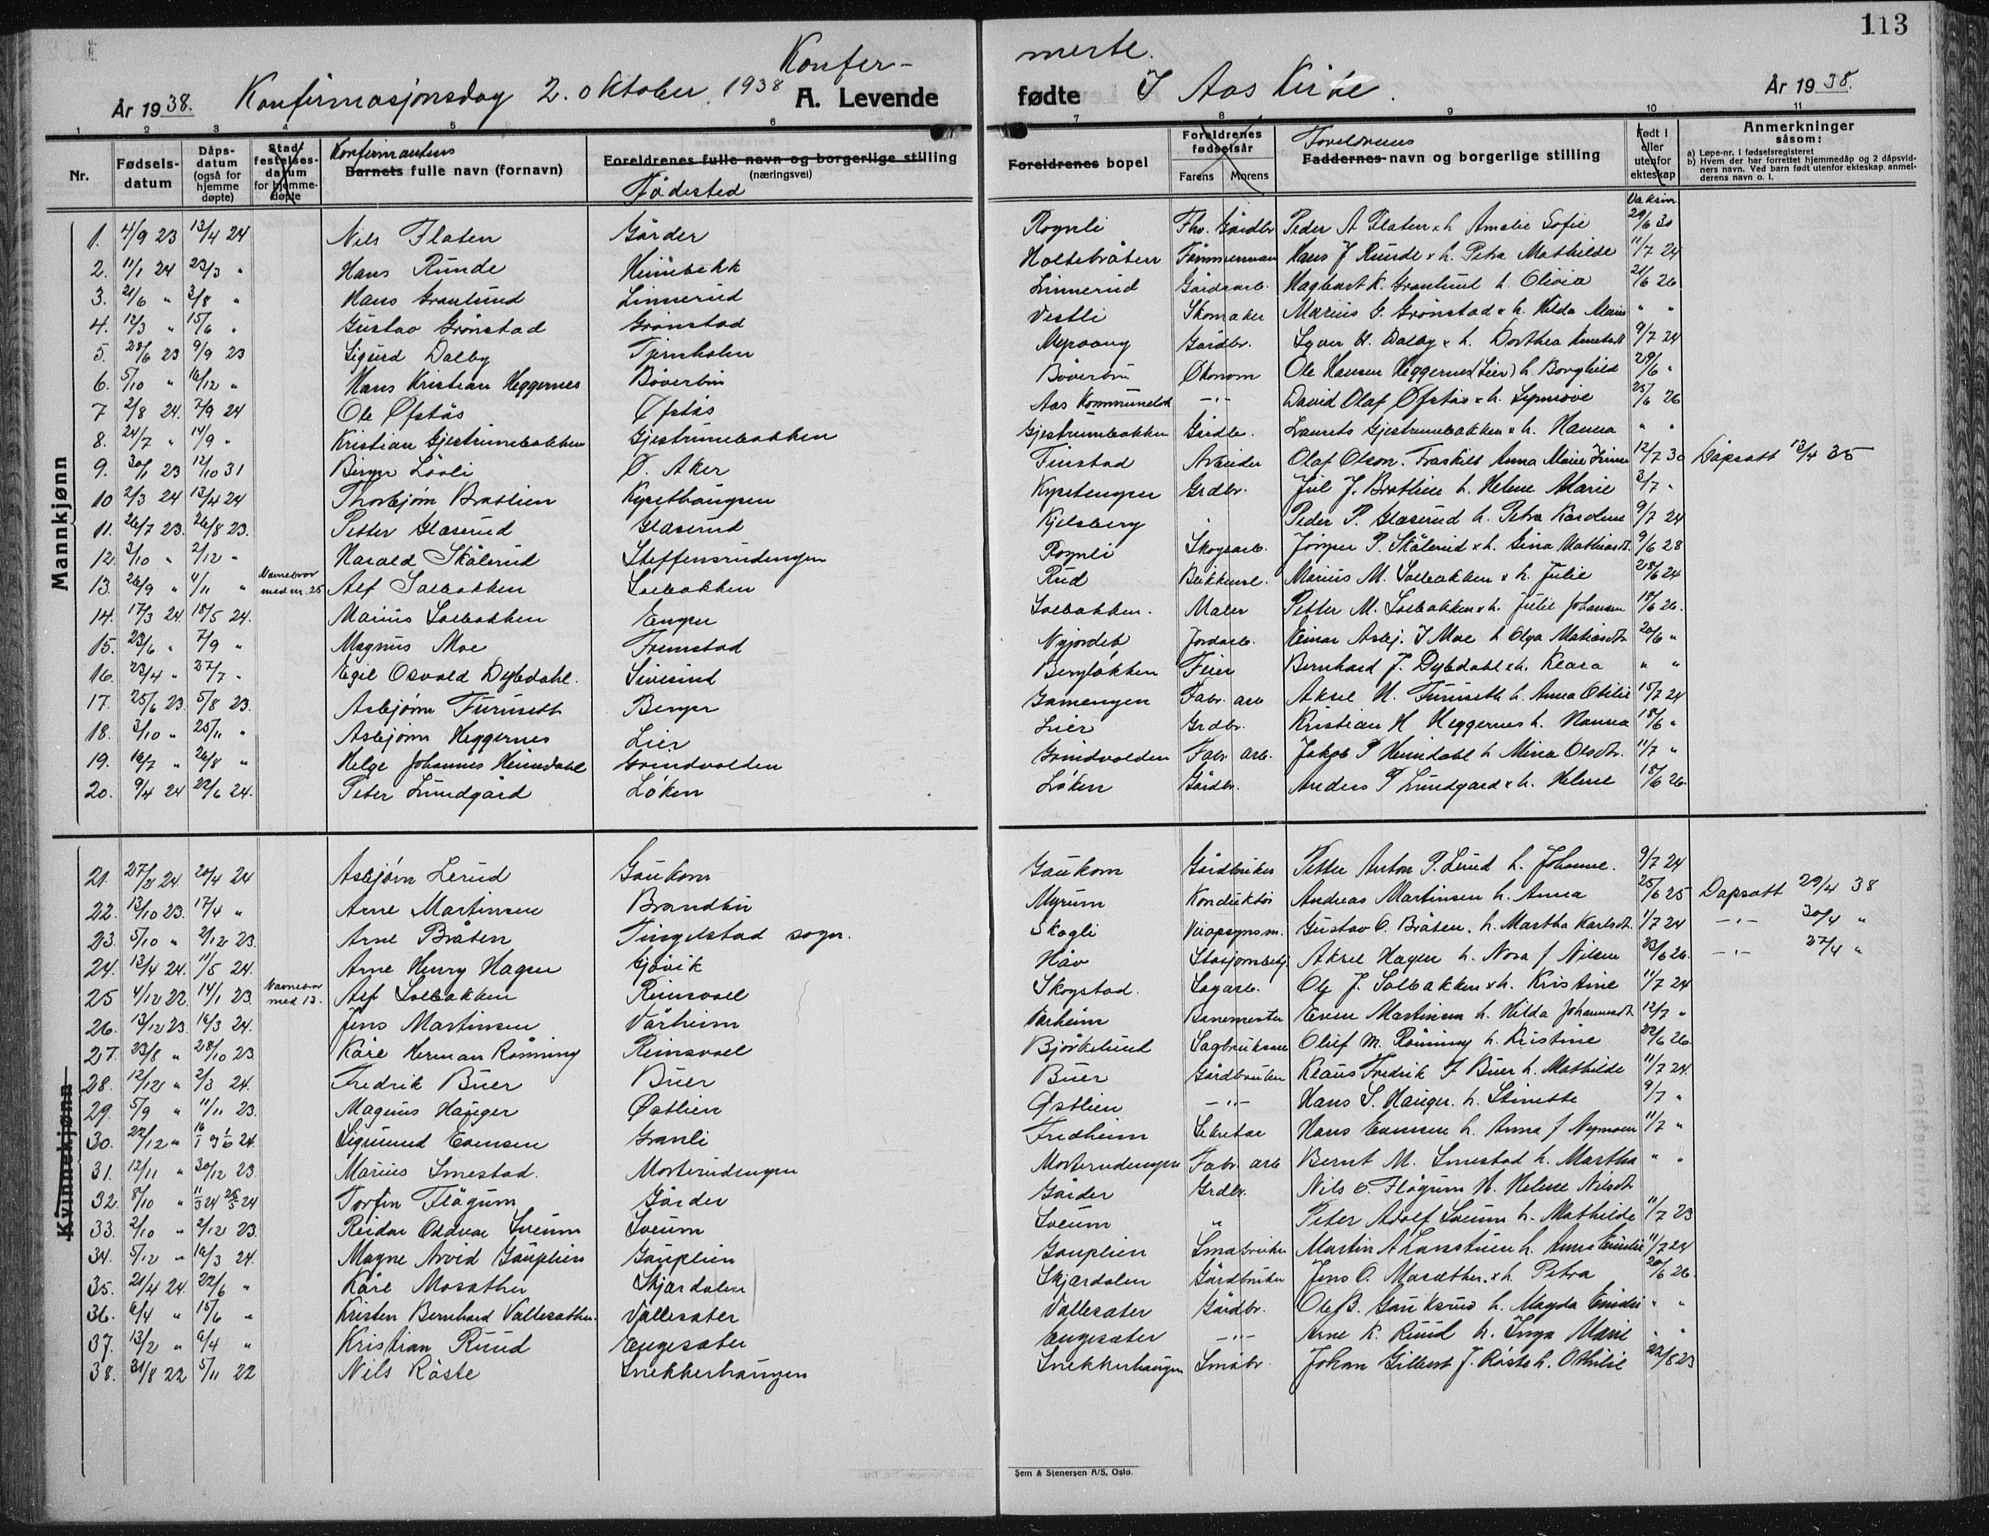 113
Konfer- merte.
År 1938. Konfirmasjonsdag 2. oktober 1938 A. Levende fødte I Aas Kirke. År 1938.
1 2 3 4 5 6 7 8 9 10 11
Nr. Fødselsdatum Dåpsdatum (også for hjemme døpte) Stadfestelsesdatum for hjemmedøpte Konfirmantens Barnets fulle navn (fornavn) Foreldrenes fulle navn og borgerlige stilling (næringsvei) Fødested Foreldrenes bopel Foreldrenes fødselsår Farens Morens Foreldrenes Faddernes navn og borgerlige stilling Født i eller utenfor ekteskap Vaksin Anmerkninger såsom: a) Løpe-nr. i fødselsregisteret b) Hvem der har forrettet hjemmedåp og 2 dåpsvidners navn. Ved barn født utenfor ekteskap, anmelderens navn o. l.
Mannkjønn
1. 4/9 23 13/4 24 Nils Flaten Gårder Rognli Fhv. Gårdbr Peder A Flaten & h. Amalie Sofie 29/6 30
2. 11/1 24 23/3 " Hans Runde Heimbekk Holtebråten Tømmerman Hans J Runde & h. Petra Mathilde 11/7 24
3. 21/6 " 3/8 " Hans Granlund Linnerud Linnerud Gårdsarb. Hagbart K. Granlund h. Olivia 21/6 26
4. 12/3 " 15/6 " Gustav Grønstad Grønstad Vestli Skomaker Marius G. Grønstad & h. Hilda Marie " "
5. 28/6 23 9/9 23 Sigurd Dalby Tjernholen Myrvang Gårdbr. Syver H. Dalby & h. Dorthea 9/7 24
6. 5/10 " 16/12 " Hans Kristian Heggernes Bøverbru Bøverbru Økonom Ole Hansen Heggernes (Lier) h. Borghild 29/6 "
7 2/8 24. 7/9 24 Ole Øfstås Øfstås Aas Kommunelok -"- David Olaf Øfstås & h. Synnøve 25/6 26
8. 24/7 " 14/9 " Kristian Gjestrumbakken Gjestrumbakken Gjestrumbakken Gårdb. Laurits Gjestrumbakken & h. Hanna " "
9. 30/1 23 12/10 31 Birger Løvli Ø. Aker Finstad Arbeider Olaf Olsen. Fraskilt Anna Marie 12/7 30 Dåpsatt 13/4 35
10 2/3 24 13/4 24 Thorbjørn Bratlien Kypsthaugen Kystengen Grdbr. Jul J. Bratlien h. Helene Marie 3/7 "
11. 26/7 23. 26/8 23. Petter Glæserud Glæserud Kjelsberg Peder P. Glæserud h. Petra Karoline 9/7 24
12. 3/10 " 2/12 " Harald Skålerud Steffensrudengen Rognli Skogsarb. Jørgen P. Skålerud & h. Gina Mathiasdt. 9/6 28
13. 26/9 " 4/11 " Navnebror med nr. 25 Alf Solbakken Solbakken Rud Bekkensl. Marius M. Solbakken & h. Julie 28/6 24
14. 17/3 24. 18/5 24. Marius Solbakken Enger Solbakken. Maler Petter M. Solbakken & h. Julie Johansen 18/6 26.
15. 23/6 " 7/9 " Magnus Moe Fremstad Nyjordet Jordarb. Einar Asbj. I Moe h Olga Matiasdt. 20/6 "
16. 23/4 " 27/7 " Egil Osvald Dybdahl. Sivesind Bergløkken Feier Bernhard J. Dybdahl & h. Klara " "
17. 25/6 23. 5/8 23. Asbjørn Furuseth Berger Gamengen Fabr. arb Aksel H. Furuseth h. Anna Otilie 15/7 24
18. 3/10 " 25/11 " Asbjørn Heggernes Lier Lier Grdbr. Kristian H Heggernes h. Hanna 18/6 "
19. 16/7 " 26/8 " Helge Johannes Heimdahl Grindvolden Grindvolden Fabr. arb. Jakob P Heimdahl h Mina Olsdt. 11/7 "
20. 9/4 24 22/6 24. Peter Lundgård Løken Løken Gårdbr. Anders P Lundgaard & h. Helene 18/6 26.
Kvinnekjønn
21. 27/2 24. 20/4 24 Asbjørn Lerud Gaukom Gaukom Gårdbruker Petter Anton P. Lerud h. Johanne. 9/7 24
22. 13/10 23. 17/4 " Arne Martinsen Brandbu Myrum Konduktør Andreas Martinsen h. Anna 25/6 25 Dåpsatt 29/4 38
23. 5/10 " 2/12 23. Arne Bråten Tingelstad sogn. Skogli Veiopsynsm. Gustav O. Bråten, h. Martha Karlsdt. 1/7 24 -"- 30/4 "
24. 13/4 24. 11/5 24. Arne Henry Hagen Gjøvik Håv Stasjonsbetj Aksel Hagen h. Nora f Nilsen 23/6 26. -"- 27/4 "
25 4/12 22. 14/1 23. Navnebror med 13. Alf Solbakken Reinsvoll Skogstad. Sagarb. Ole J. Solbakken & h. Kristine 11/7 24
26. 13/12 23. 16/3 24. Jens Martinsen Vårheim Vårheim Banemester Even Martinsen h. Hilda Johannesdt 12/7 "
27. 23/8 " 28/10 23. Kåre Herman Rønning Reinsvoll Bjørkelund Sagbruksarb Oluf M. Rønning h. Kristine 22/6 26.
28. 12/12 " 2/3 24. Fredrik Buer Buer Buer Gårdbruker Klaus Fredrik J Buer h. Mathilde 11/7 24.
29. 5/9 " 11/11 23. Magnus Hauger Østlien Østlien -"- Hans S. Hauger. h. Stinette 9/7 "
30. 22/12 " 16/1 og 1/6 24. Sigmund Evensen Granli Fredheim Sekretær Hans Evensen h. Anna f Nymoen 11/7 "
31. 12/11 " 30/12 23. Marius Smestad. Morterudengen Morterudengen Fabr. arb Bernt M. Smestad h. Martha " "
32. 8/10 " 11/3 24 25/5 24 Torfin Flågum Gårder Gårder Grdbr. Nils O. Flågum h. Helene Nilsdt
33. 2/10 " 2/12 23. Reidar Oddvar Sveum Sveum Sveum " Peter Adolf Sveum h. Mathilde 11/7 23
34. 5/12 " 16/3 24. Magne Arvid Gauplien Gauplien Gauplien Småbruker Martin A Lanstuen h. Anna Emilie 11/7 24
35. 21/4 24. 22/6 " Kåre Mosæther Skjærdalen Skjærdalen Gårdbruker Jens O. Mosæther, & h. Petra 20/6 26.
36. 6/4 " 15/6 " Kristen Bernhard Vallesæther. Vallesæter Vallesæter Gårdbr. Ole B. h. Magda " "
37. 13/2 " 6/4 " Kristian Ruud Engesæter Engesæter -"- Arne K. Ruud h. Inga Marie " "
38. 31/8 22 5/11 22 Nils Røste Snekkerhaugen Snekkerhaugen Småbr. Johan Gilbert J. Røste h. Othilie 22/8 23
Sem & Stenersen A/S, Oslo.